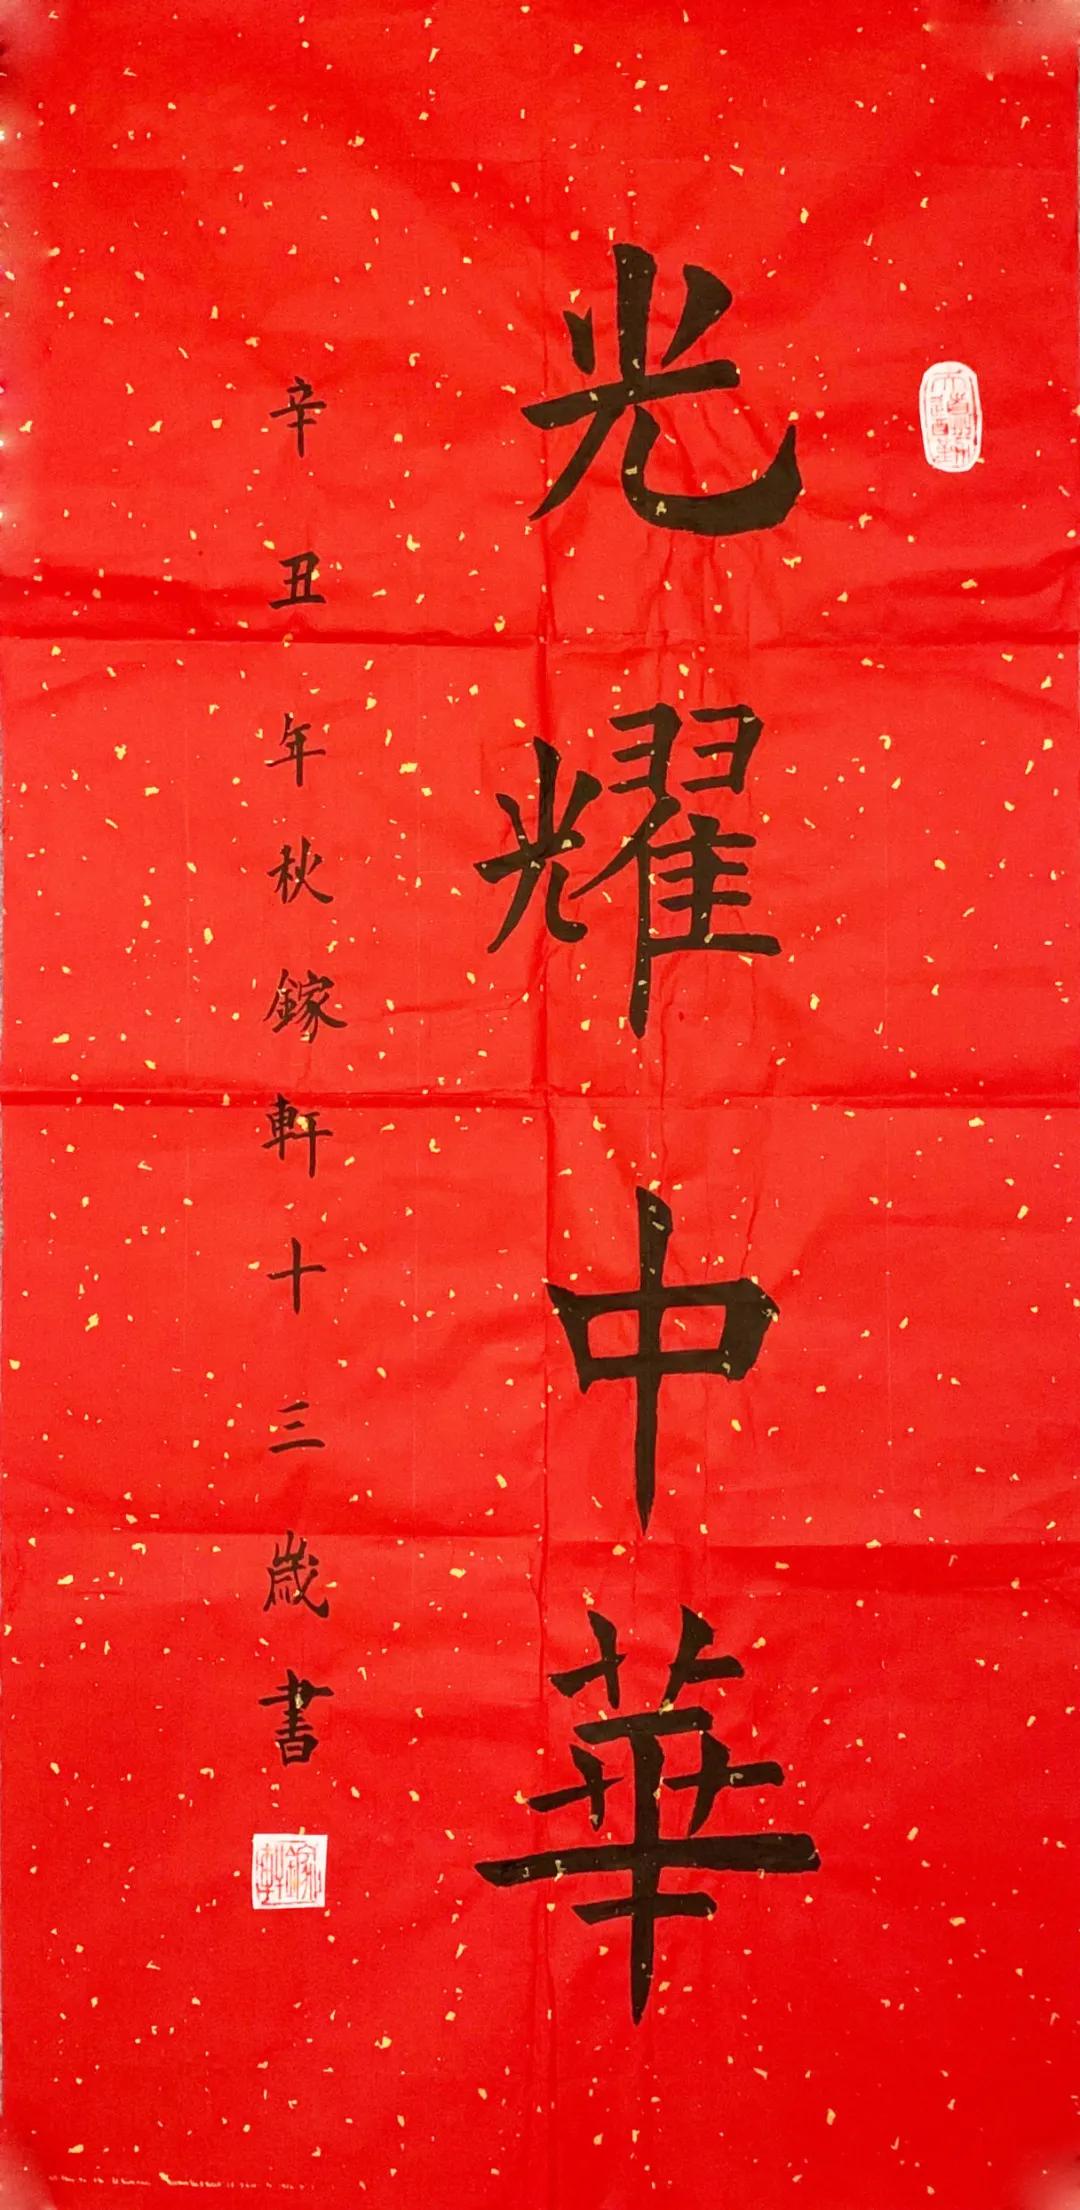 光耀中華
辛丑年秋鎵軒十三歲書
鎵軒